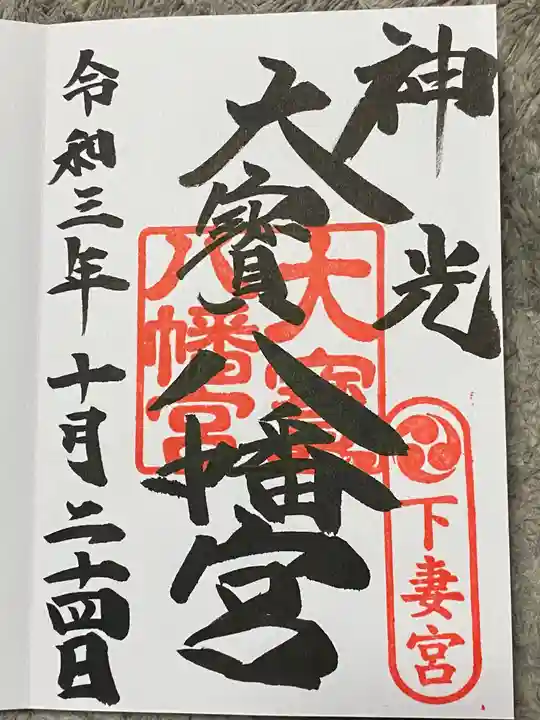 神光
大寳八幡宮
令和三年十月二十四日
大寳
八幡宮
下妻宮